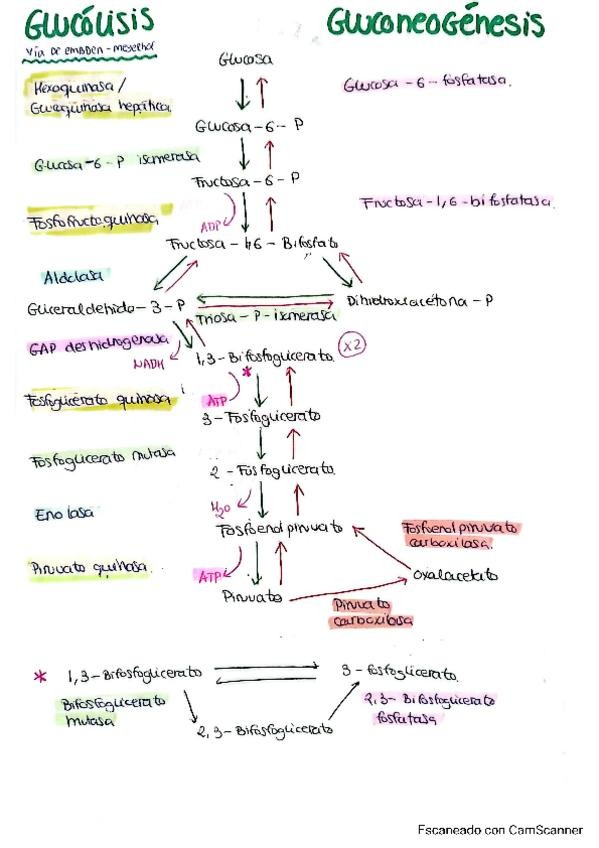 GLUCÓLISIS
GLUCONEOGÉNESIS
VÍA DE EMBDEN-MEYERHOF
Glucosa
Hexoquinasa /
Glucoquinasa hepática
Glucosa-6-fosfatasa.
Glucosa-6-P
Glucosa-6-P isomerasa
Fructosa-6-P
Fosfofructoquinasa
ADP
Fructosa-1,6-bifosfatasa.
Fructosa-1,6-Bifosfato
Aldolasa
Gliceraldehído-3-P
Dihidroxiacetona-P
Triosa-P-isomerasa
GAP deshidrogenasa
NADH
1,3-Bifosfoglicerato
x2
*
Fosfoglicerato quinasa
ATP
3-Fosfoglicerato
Fosfoglicerato mutasa
2-Fosfoglicerato
Enolasa
H2O
Fosfoenolpiruvato
Fosfoenolpiruvato
carboxilasa.
Piruvato quinasa.
ATP
Oxalacetato
Piruvato
Piruvato
carboxilasa
* 1,3-Bifosfoglicerato
3-fosfoglicerato.
Bifosfoglicerato
mutasa
2,3-Bifosfoglicerato
fosfatasa
2,3-Bifosfoglicerato
Escaneado con CamScanner